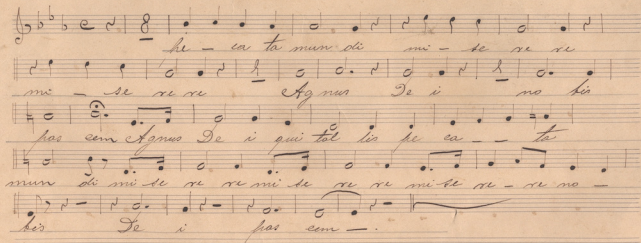 8
pe - ca ta mun di mi - se re re
mi - se re re Agnus De i no bis
pas cem Agnus De i qui tol lis pe ca - - ta
mun di mi se re re mi se re re mi se re - re no -
bis De i pas cem - .